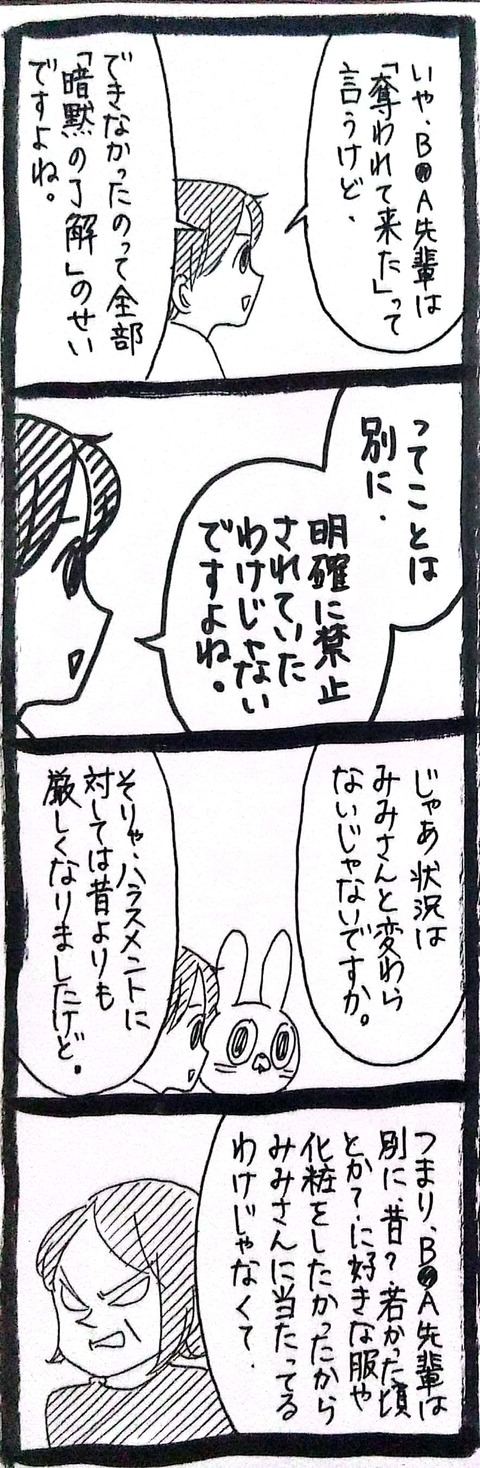 いや、B●A先輩は
「奪われて来た」って
言うけど、
できなかったのって全部
「暗黙の了解」のせい
ですよね。
ってことは
別に、
明確に禁止
されていた
わけじゃない
ですよね。
じゃあ状況は
みみさんと変わら
ないじゃないですか。
そりゃ、ハラスメントに
対しては昔よりも
厳しくなりましたけど。
つまり、B●A先輩は
別に、昔?若かった頃
とか?に好きな服や
化粧をしたかったから
みみさんに当たってる
わけじゃなくて、